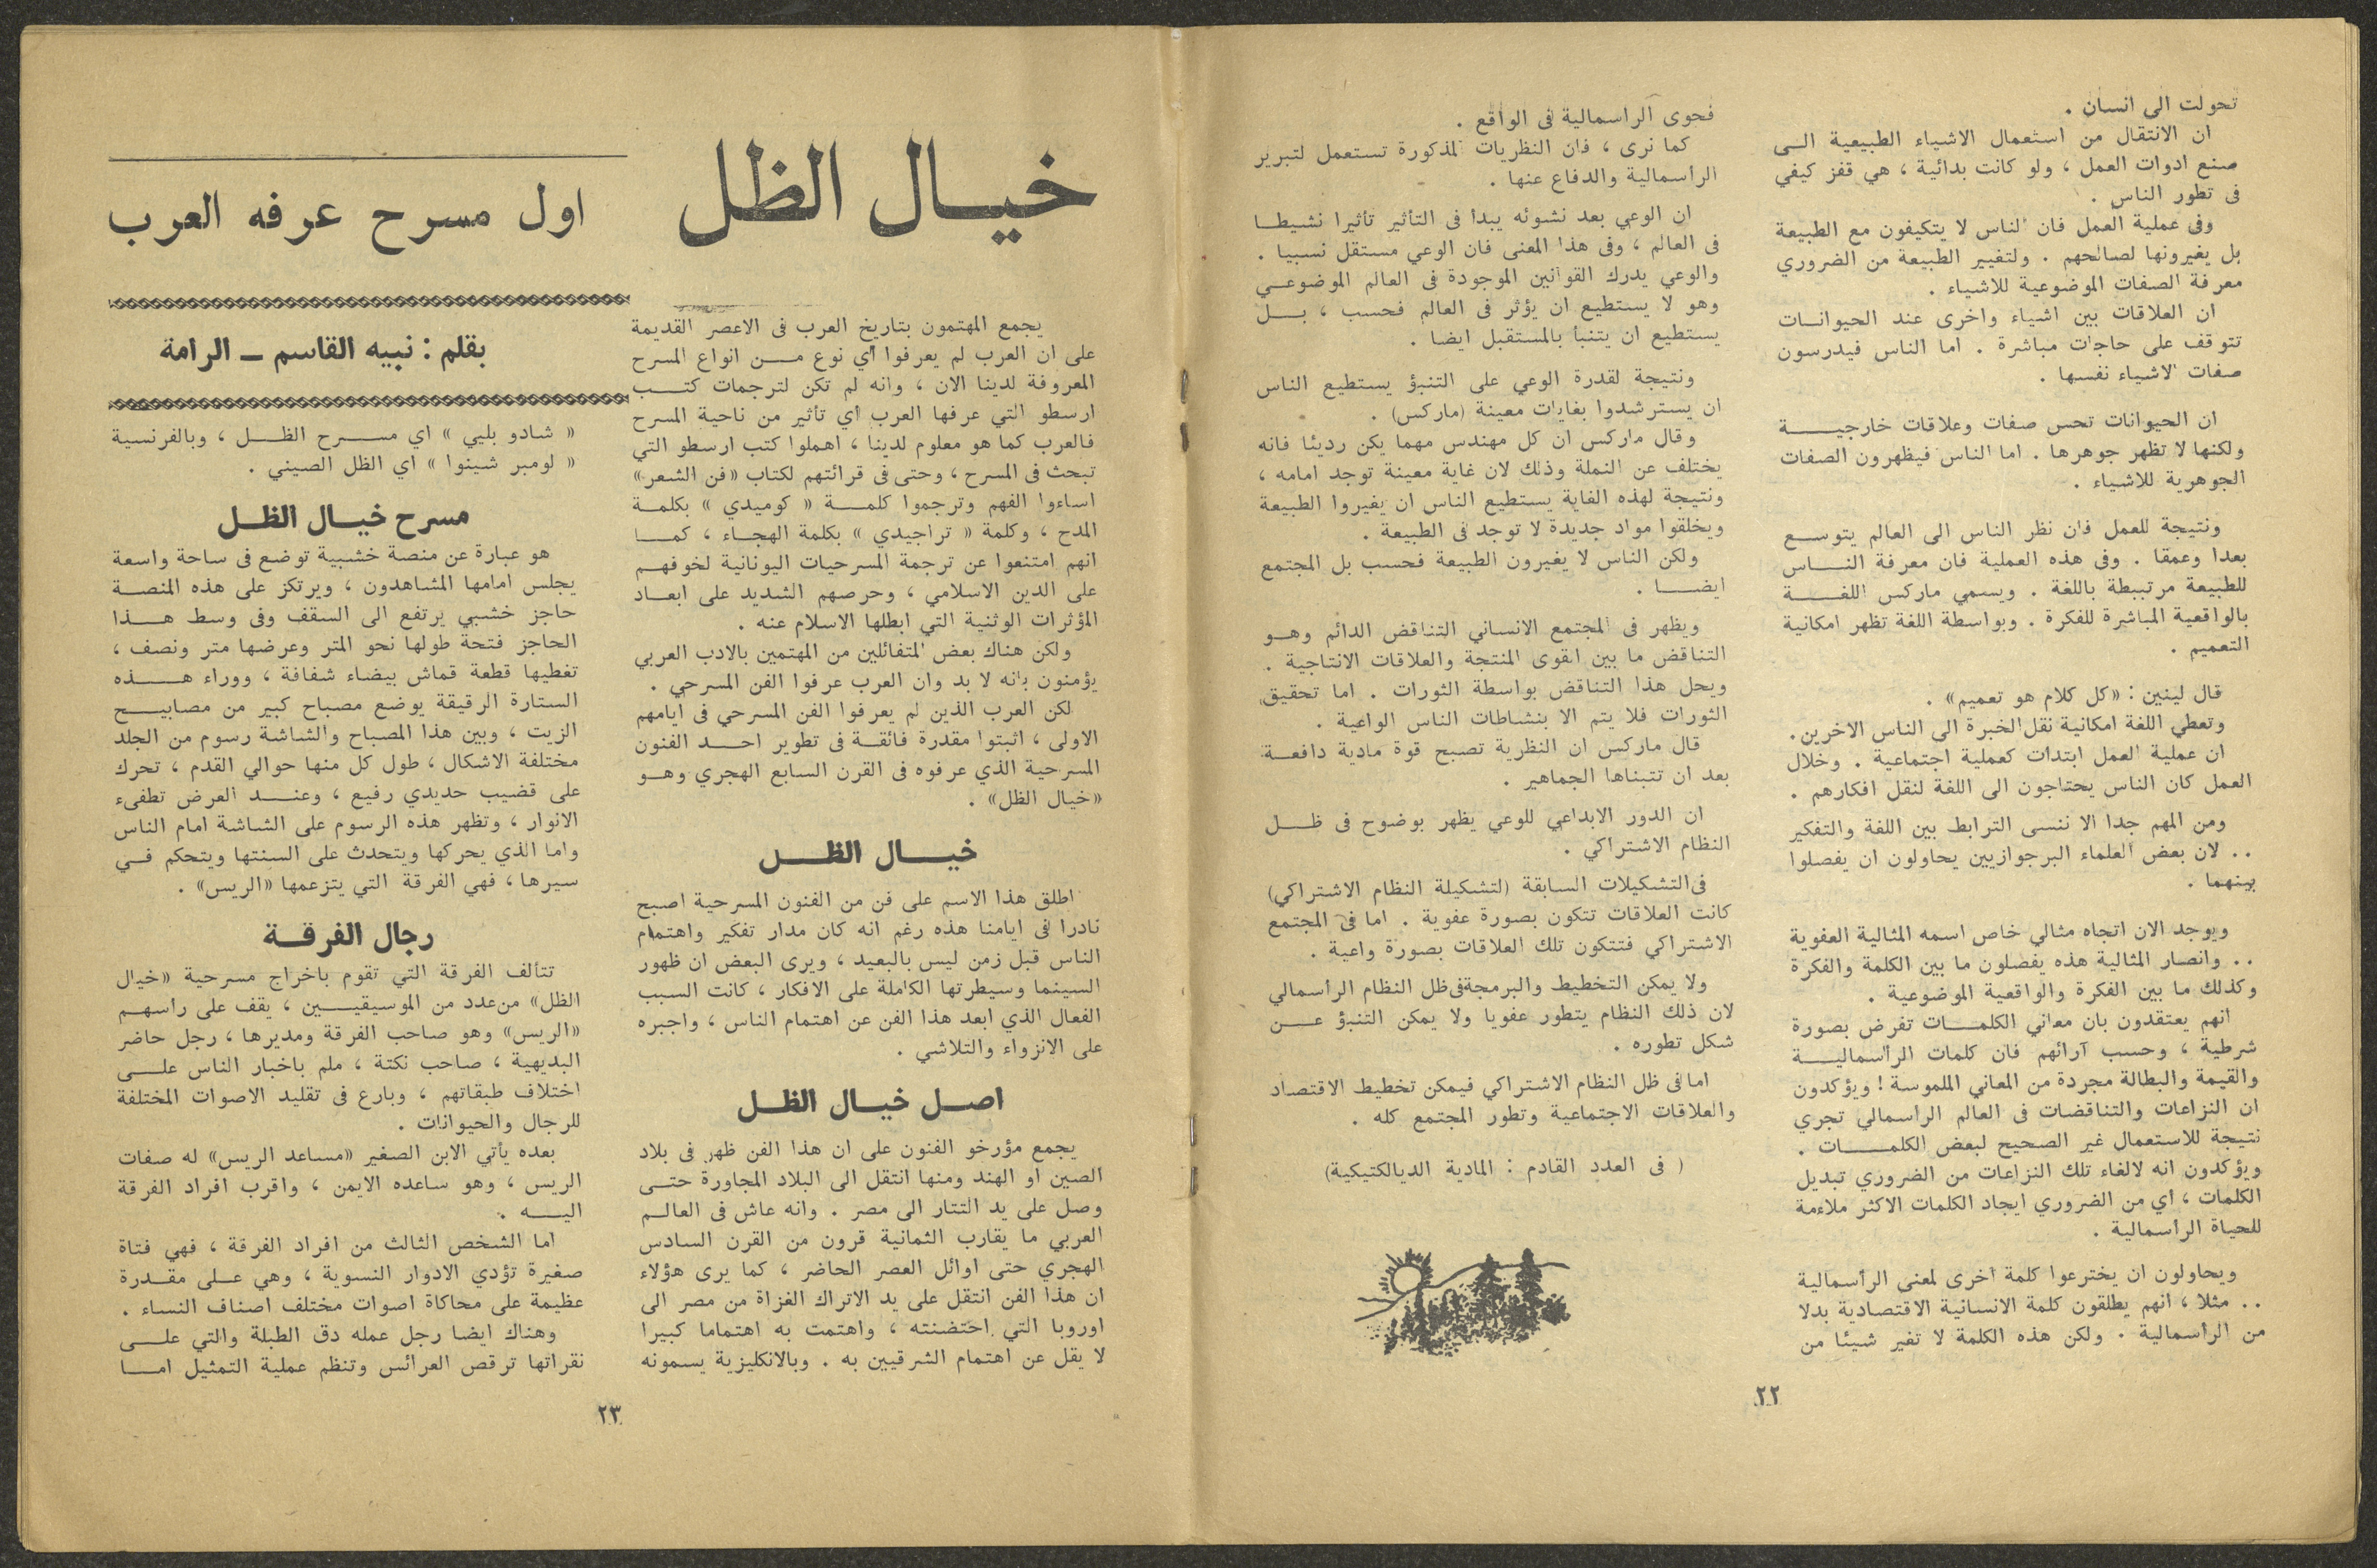 تحولت الى انسان .
ان الانتقال من استعمال الاشياء الطبيعية الى
صنع ادوات العمل ، ولو كانت بدائية ، هي قفز كيفي
فى تطور الناس .
وفى عملية العمل فان الناس لا يتكيفون مع الطبيعة
بل يغيرونها لصالحهم . ولتغيير الطبيعة من الضروري
معرفة الصفات الموضوعية للاشياء .
ان العلاقات بين اشياء واخرى عند الحيوانات
تتوقف على حاجات مباشرة . اما الناس فيدرسون
صفات الاشياء نفسها .
ان الحيوانات تحس صفات وعلاقات خارجية
ولكنها لا تظهر جوهرها . اما الناس فيظهرون الصفات
الجوهرية للاشياء .
ونتيجة للعمل فان نظر الناس الى العالم يتوسع
بعدا وعمقا . وفى هذه العملية فان معرفة الناس
للطبيعة مرتببطة باللغة . ويسمي ماركس اللغة
بالواقعية المباشرة للفكرة . وبواسطة اللغة تظهر امكانية
التعميم .
قال لينين : «كل كلام هو تعميم» .
وتعطي اللغة امكانية نقل الخبرة الى الناس الاخرين .
ان عملية العمل ابتدات كعملية اجتماعية . وخلال
العمل كان الناس يحتاجون الى اللغة لنقل افكارهم .
ومن المهم جدا الا ننسى الترابط بين اللغة والتفكير
.. لان بعض العلماء البرجوازيين يحاولون ان يفصلوا
بينهما .
ويوجد الان اتجاه مثالي خاص اسمه المثالية العفوية
.. وانصار المثالية هذه يفصلون ما بين الكلمة والفكرة
وكذلك ما بين الفكرة والواقعية الموضوعية .
انهم يعتقدون بان معاني الكلمات تفرض بصورة
شرطية ، وحسب آرائهم فان كلمات الرأسمالية
والقيمة والبطالة مجردة من المعاني الملموسة ! ويؤكدون
ان النزاعات والتناقضات فى العالم الراسمالي تجري
نتيجة للاستعمال غير الصحيح لبعض الكلمات .
ويؤكدون انه لالغاء تلك النزاعات من الضروري تبديل
الكلمات ، اي من الضروري ايجاد الكلمات الاكثر ملاءمة
للحياة الرأسمالية .
ويحاولون ان يخترعوا كلمة اخرى لمعنى الرأسمالية
.. مثلا ، انهم يطلقون كلمة الانسانية الاقتصادية بدلا
من الرأسمالية . ولكن هذه الكلمة لا تغير شيئا من
فحوى الراسمالية فى الواقع .
كما نرى ، فان النظريات المذكورة تستعمل لتبرير
الرأسمالية والدفاع عنها .
ان الوعي بعد نشوئه يبدأ فى التأثير تأثيرا نشيطا
فى العالم ، وفى هذا المعنى فان الوعي مستقل نسبيا .
والوعي يدرك القوانين الموجودة فى العالم الموضوعي
وهو لا يستطيع ان يؤثر فى العالم فحسب ، بل
يستطيع ان يتنبأ بالمستقبل ايضا .
ونتيجة لقدرة الوعي على التنبؤ يستطيع الناس
ان يسترشدوا بغايات معينة (ماركس) .
وقال ماركس ان كل مهندس مهما يكن رديئا فانه
يختلف عن النملة وذلك لان غاية معينة توجد امامه ،
ونتيجة لهذه الغاية يستطيع الناس ان يغيروا الطبيعة
ويخلقوا مواد جديدة لا توجد فى الطبيعة .
ولكن الناس لا يغيرون الطبيعة فحسب بل المجتمع
ايضا .
ويظهر فى المجتمع الانساني التناقض الدائم وهو
التناقض ما بين القوى المنتجة والعلاقات الانتاجية .
ويحل هذا التناقض بواسطة الثورات . اما تحقيق
الثورات فلا يتم الا بنشاطات الناس الواعية .
قال ماركس ان النظرية تصبح قوة مادية دافعة
بعد ان تتبناها الجماهير .
ان الدور الابداعي للوعي يظهر بوضوح فى ظل
النظام الاشتراكي .
فى التشكيلات السابقة (لتشكيلة النظام الاشتراكي)
كانت العلاقات تتكون بصورة عفوية . اما فى المجتمع
الاشتراكي فتتكون تلك العلاقات بصورة واعية .
ولا يمكن التخطيط والبرمجة فى ظل النظام الرأسمالي
لان ذلك النظام يتطور عفويا ولا يمكن التنبؤ عن
شكل تطوره .
اما فى ظل النظام الاشتراكي فيمكن تخطيط الاقتصاد
والعلاقات الاجتماعية وتطور المجتمع كله .
( فى العدد القادم : المادية الديالكتيكية)
٢٢
خيال الظل
اول مسرح عرفه العرب
بقلم : نبيه القاسم ــ الرامة
يجمع المهتمون بتاريخ العرب فى الاعصر القديمة
على ان العرب لم يعرفوا اي نوع من انواع المسرح
المعروفة لدينا الان ، وانه لم تكن لترجمات كتب
ارسطو التي عرفها العرب اي تأثير من ناحية المسرح
فالعرب كما هو معلوم لدينا ، اهملوا كتب ارسطو التي
تبحث فى المسرح ، وحتى فى قرائتهم لكتاب «فن الشعر»
اساءوا الفهم وترجموا كلمة « كوميدي » بكلمة
المدح ، وكلمة « تراجيدي » بكلمة الهجاء ، كما
انهم امتنعوا عن ترجمة المسرحيات اليونانية لخوفهم
على الدين الاسلامي ، وحرصهم الشديد على ابعاد
المؤثرات الوثنية التي ابطلها الاسلام عنه .
ولكن هناك بعض المتفائلين من المهتمين بالادب العربي
يؤمنون بانه لا بد وان العرب عرفوا الفن المسرحي .
لكن العرب الذين لم يعرفوا الفن المسرحي فى ايامهم
الاولى ، اثبتوا مقدرة فائقة فى تطوير احد الفنون
المسرحية الذي عرفوه فى القرن السابع الهجري وهو
«خيال الظل» .
خيال الظل
اطلق هذا الاسم على فن من الفنون المسرحية اصبح
نادرا فى ايامنا هذه رغم انه كان مدار تفكير واهتمام
الناس قبل زمن ليس بالبعيد ، ويرى البعض ان ظهور
السينما وسيطرتها الكاملة على الافكار ، كانت السبب
الفعال الذي ابعد هذا الفن عن اهتمام الناس ، واجبره
على الانزواء والتلاشي .
اصل خيال الظل
يجمع مؤرخو الفنون على ان هذا الفن ظهر فى بلاد
الصين او الهند ومنها انتقل الى البلاد المجاورة حتى
وصل على يد التتار الى مصر . وانه عاش فى العالم
العربي ما يقارب الثمانية قرون من القرن السادس
الهجري حتى اوائل العصر الحاضر ، كما يرى هؤلاء
ان هذا الفن انتقل على يد الاتراك الغزاة من مصر الى
اوروبا التي احتضنته ، واهتمت به اهتماما كبيرا
لا يقل عن اهتمام الشرقيين به . وبالانكليزية يسمونه
« شادو بليي » اي مسرح الظل ، وبالفرنسية
« لومبر شينوا » اي الظل الصيني .
مسرح خيال الظل
هو عبارة عن منصة خشبية توضع فى ساحة واسعة
يجلس امامها المشاهدون ، ويرتكز على هذه المنصة
حاجز خشبي يرتفع الى السقف وفى وسط هذا
الحاجز فتحة طولها نحو المتر وعرضها متر ونصف ،
تغطيها قطعة قماش بيضاء شفافة ، ووراء هذه
الستارة الرقيقة يوضع مصباح كبير من مصابيح
الزيت ، وبين هذا المصباح والشاشة رسوم من الجلد
مختلفة الاشكال ، طول كل منها حوالي القدم ، تحرك
على قضيب حديدي رفيع ، وعند العرض تطفىء
الانوار ، وتظهر هذه الرسوم على الشاشة امام الناس
واما الذي يحركها ويتحدث على السنتها ويتحكم في
سيرها ، فهي الفرقة التي يتزعمها «الريس» .
رجال الفرقة
تتألف الفرقة التي تقوم باخراج مسرحية «خيال
الظل» من عدد من الموسيقيين ، يقف على راسهم
«الريس» وهو صاحب الفرقة ومديرها ، رجل حاضر
البديهية ، صاحب نكتة ، ملم باخبار الناس على
اختلاف طبقاتهم ، وبارع فى تقليد الاصوات المختلفة
للرجال والحيوانات .
بعده يأتي الابن الصغير «مساعد الريس» له صفات
الريس ، وهو ساعده الايمن ، واقرب افراد الفرقة
اليه .
اما الشخص الثالث من افراد الفرقة ، فهي فتاة
صغيرة تؤدي الادوار النسوية ، وهي على مقدرة
عظيمة على محاكاة اصوات مختلف اصناف النساء .
وهناك ايضا رجل عمله دق الطبلة والتي على
نقراتها ترقص العرائس وتنظم عملية التمثيل اما
٢٣